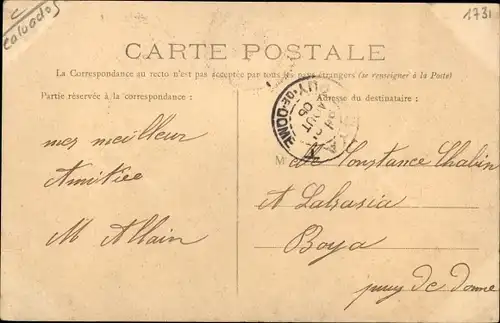 C
Calvados
1731
CARTE POSTALE
La Correspondance au recto n'est pas acceptée par tous les pays étrangers (se renseigner à la Poste)
Partie réservée à la correspondance :
Adresse du destinataire :
PUY-DE-DOME
AOUT
06
mes meilleur
Amitiée
M Allain
M
elle Constance Chabin
A Lahasia
Boya
puy de dome